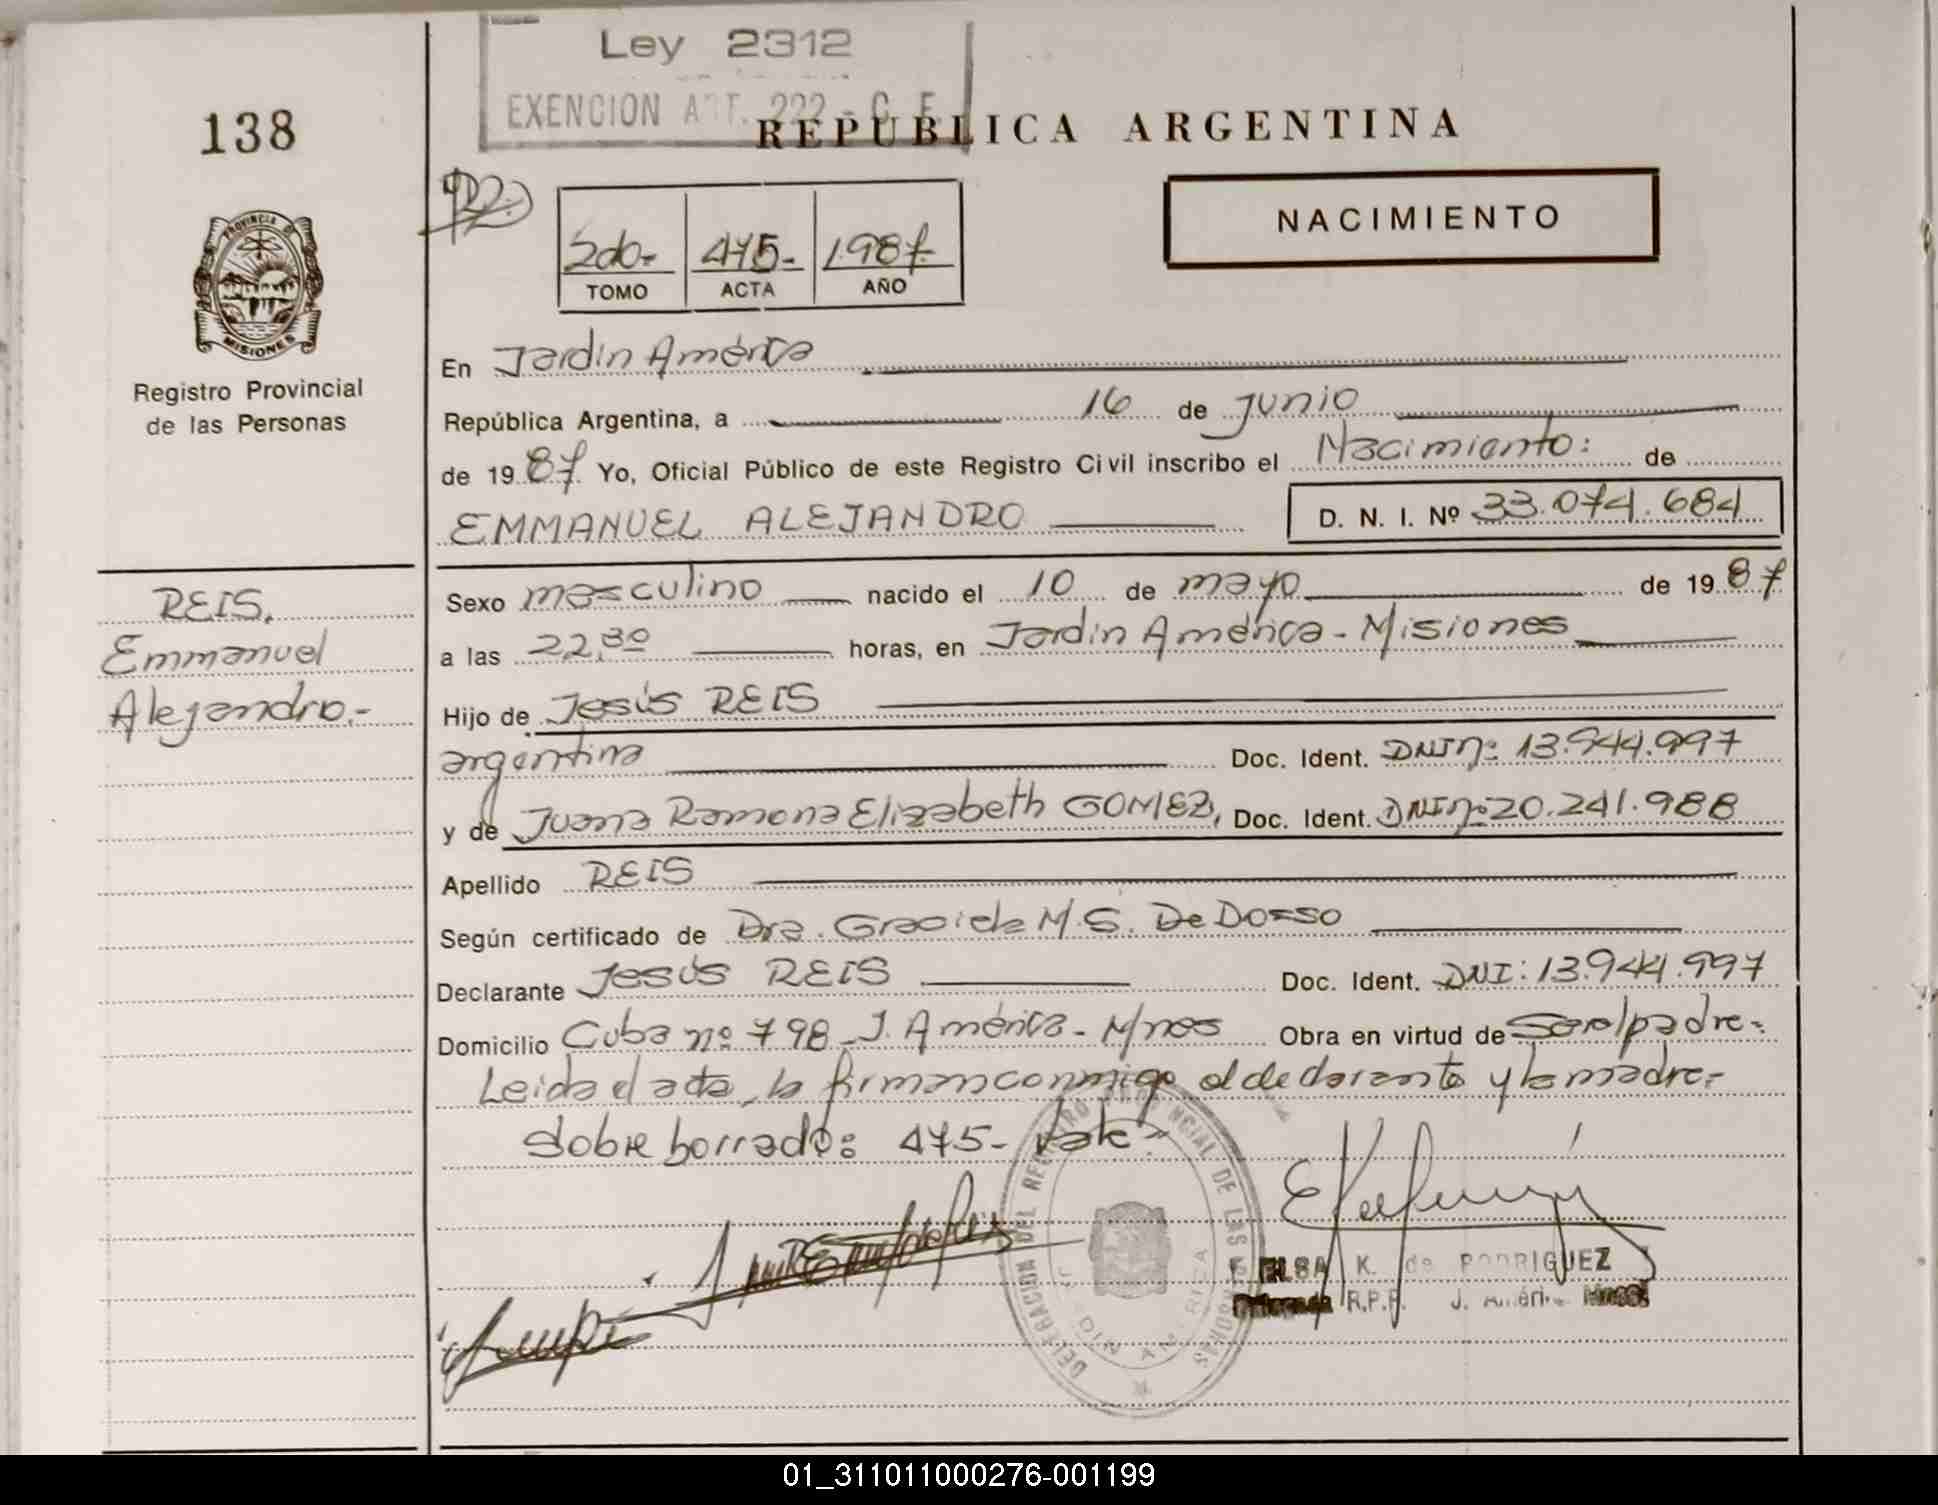 Ley 2312
EXENCION ART. 222 - C. F.
138
REPUBLICA ARGENTINA
NACIMIENTO
2do.- 475- 1987.
TOMO ACTA AÑO
PROVINCIA D
MISIONES
Registro Provincial
de las Personas
En Jardín América
República Argentina, a 16 de junio
de 19 87 Yo, Oficial Público de este Registro Civil inscribo el Nacimiento: de
EMMANUEL ALEJANDRO D. N. I. Nº 33.074.684
REIS.
Emmanuel
Alejandro.-
Sexo masculino nacido el 10 de mayo de 19 87
a las 22,30 horas, en Jardín América - Misiones
Hijo de Jesús REIS
argentina Doc. Ident. DNI nº: 13.944.997
y de Juana Ramona Elizabeth GOMEZ, Doc. Ident. DNI nº 20.241.988
Apellido REIS
Según certificado de Dra. Graciela M. S. De Dosso
Declarante Jesús REIS Doc. Ident. DNI: 13.944.997
Domicilio Cuba nº 798 - J. América - Mnes Obra en virtud de Ser el padre.-
Leída el acta, la firman conmigo el declarante y la madre.-
Sobre borrado: 475- Vale-
DELEGACION DEL REGISTRO PROVINCIAL DE LAS PERSONAS
JARDIN AMERICA
ELSA K. de RODRIGUEZ
R.P.P. J. América Mnes.
01_311011000276-001199